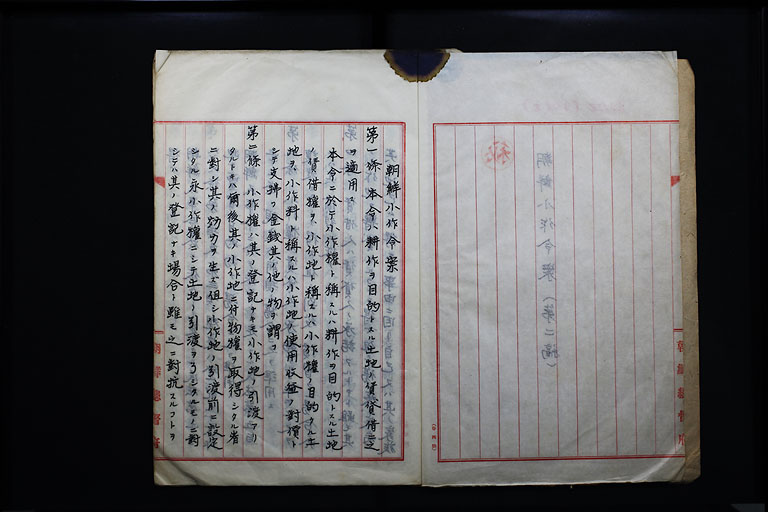 朝鮮小作令案（第二稿）
秘
朝鮮小作令案
第一條 本令ハ耕作ヲ目的トスル土地ノ賃貸借ニ之
ヲ適用ス
本令ニ於テ小作權ト稱スルハ耕作ヲ目的トスル土地
ノ賃借權ヲ、小作地ト稱スルハ小作權ノ目的タル土
地ヲ、小作料ト稱スルハ小作地ノ使用收益ノ對價ト
シテ支拂フ金錢其ノ他ノ物ヲ謂フ
第二條 小作權ハ其ノ登記ナキモ小作地ノ引渡アリ
タルトキハ爾後其ノ小作地ニ付物權ヲ取得シタル者
ニ對シ其ノ效力ヲ生ズ但シ小作地ノ引渡前ニ設定
シタル永小作權ニシテ土地ノ引渡ヲ了シタルモノニ對
シテハ其ノ登記ナキ場合ト雖モ之ニ對抗スルコトヲ
朝鮮總督府